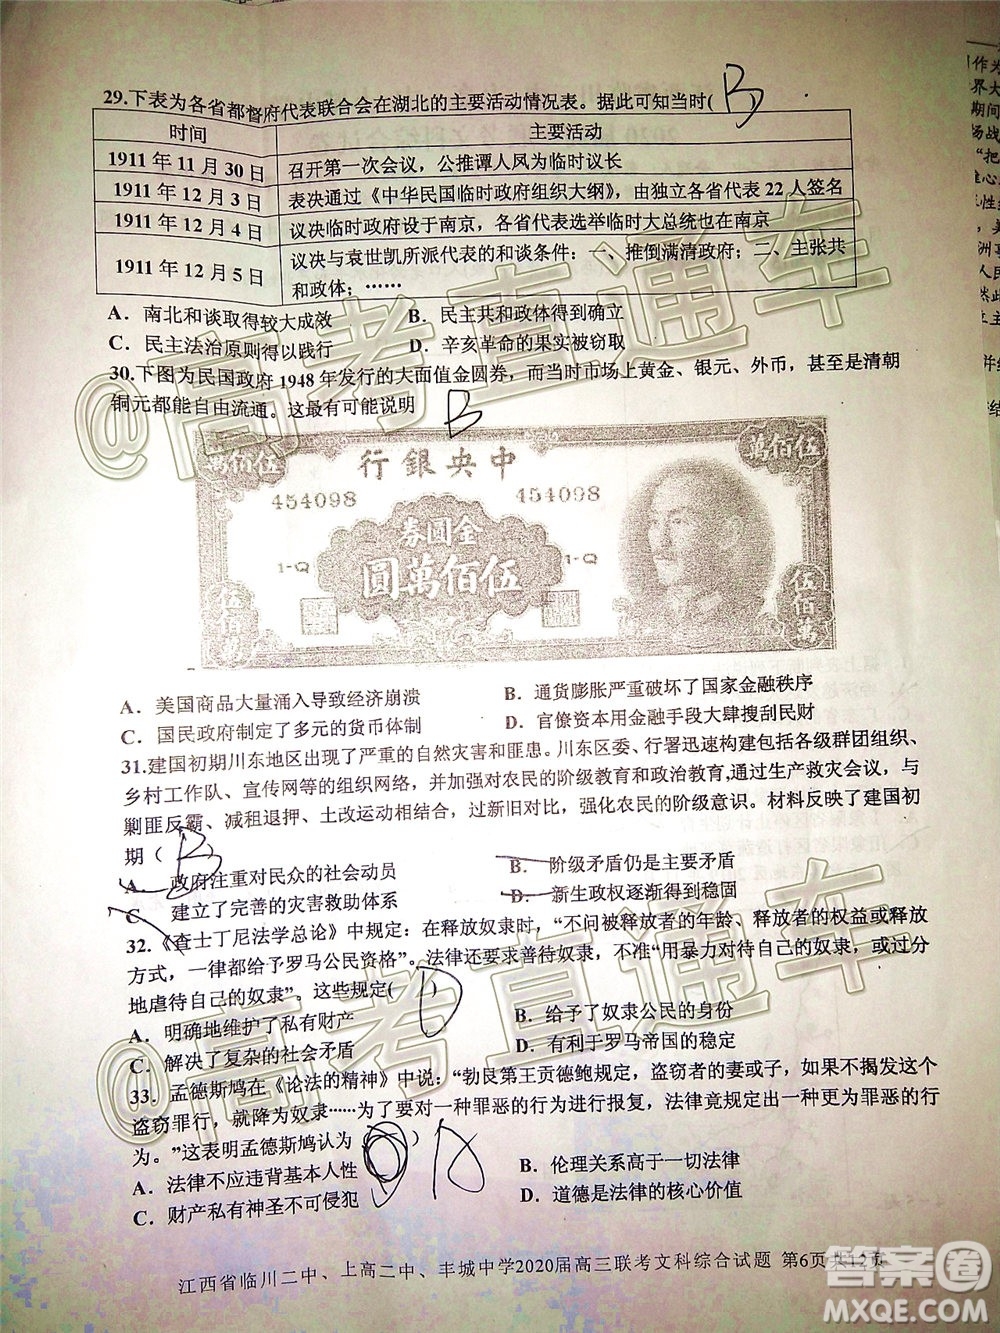 29.下表为各省都督府代表联合会在湖北的主要活动情况表。据此可知当时( B )
时间 主要活动
1911 年 11 月 30 日 召开第一次会议，公推谭人凤为临时议长
1911 年 12 月 3 日 表决通过《中华民国临时政府组织大纲》，由独立各省代表 22 人签名
1911 年 12 月 4 日 议决临时政府设于南京，各省代表选举临时大总统也在南京
1911 年 12 月 5 日 议决与袁世凯所派代表的和谈条件：一、推倒满清政府；二、主张共
和政体；……
A. 南北和谈取得较大成效 B. 民主共和政体得到确立
C. 民主法治原则得以践行 D. 辛亥革命的果实被窃取
30.下图为民国政府 1948 年发行的大面值金圆券，而当时市场上黄金、银元、外币，甚至是清朝
铜元都能自由流通。这最有可能说明 B
萬佰伍 行銀央中 萬佰伍
454098 454098
券圓金
1-Q 圓萬佰伍 1-Q
伍佰萬 伍佰萬
A. 美国商品大量涌入导致经济崩溃 B. 通货膨胀严重破坏了国家金融秩序
C. 国民政府制定了多元的货币体制 D. 官僚资本用金融手段大肆搜刮民财
31.建国初期川东地区出现了严重的自然灾害和匪患。川东区委、行署迅速构建包括各级群团组织、
乡村工作队、宣传网等的组织网络，并加强对农民的阶级教育和政治教育,通过生产救灾会议、
剿匪反霸、减租退押、土改运动相结合，过新旧对比，强化农民的阶级意识。材料反映了建国初
期（ B
A. 政府注重对民众的社会动员 B. 阶级矛盾仍是主要矛盾
C. 建立了完善的灾害救助体系 D. 新生政权逐渐得到稳固
32.《查士丁尼法学总论》中规定：在释放奴隶时，“不问被释放者的年龄、释放者的权益或释放
方式，一律都给予罗马公民资格”。法律还要求善待奴隶，不准“用暴力对待自己的奴隶或过分
地虐待自己的奴隶”。这些规定( D )
A. 明确地维护了私有财产 B. 给予了奴隶公民的身份
C. 解决了复杂的社会矛盾 D. 有利于罗马帝国的稳定
33. 孟德斯鸠在《论法的精神》中说：“勃艮第王贡德鲍规定，盗窃者的妻或子，如果不揭发这个
盗窃罪行，就降为奴隶……为了要对一种罪恶的行为进行报复，法律竟规定出一种更为罪恶的行
为。”这表明孟德斯鸠认为（ ）D
A. 法律不应违背基本人性 B. 伦理关系高于一切法律
C. 财产私有神圣不可侵犯 D. 道德是法律的核心价值
江西省临川二中、上高二中、丰城中学2020届高三联考文科综合试题 第6页共12页
@高考直通车
@高考直通车
答案圈
MXQE.COM